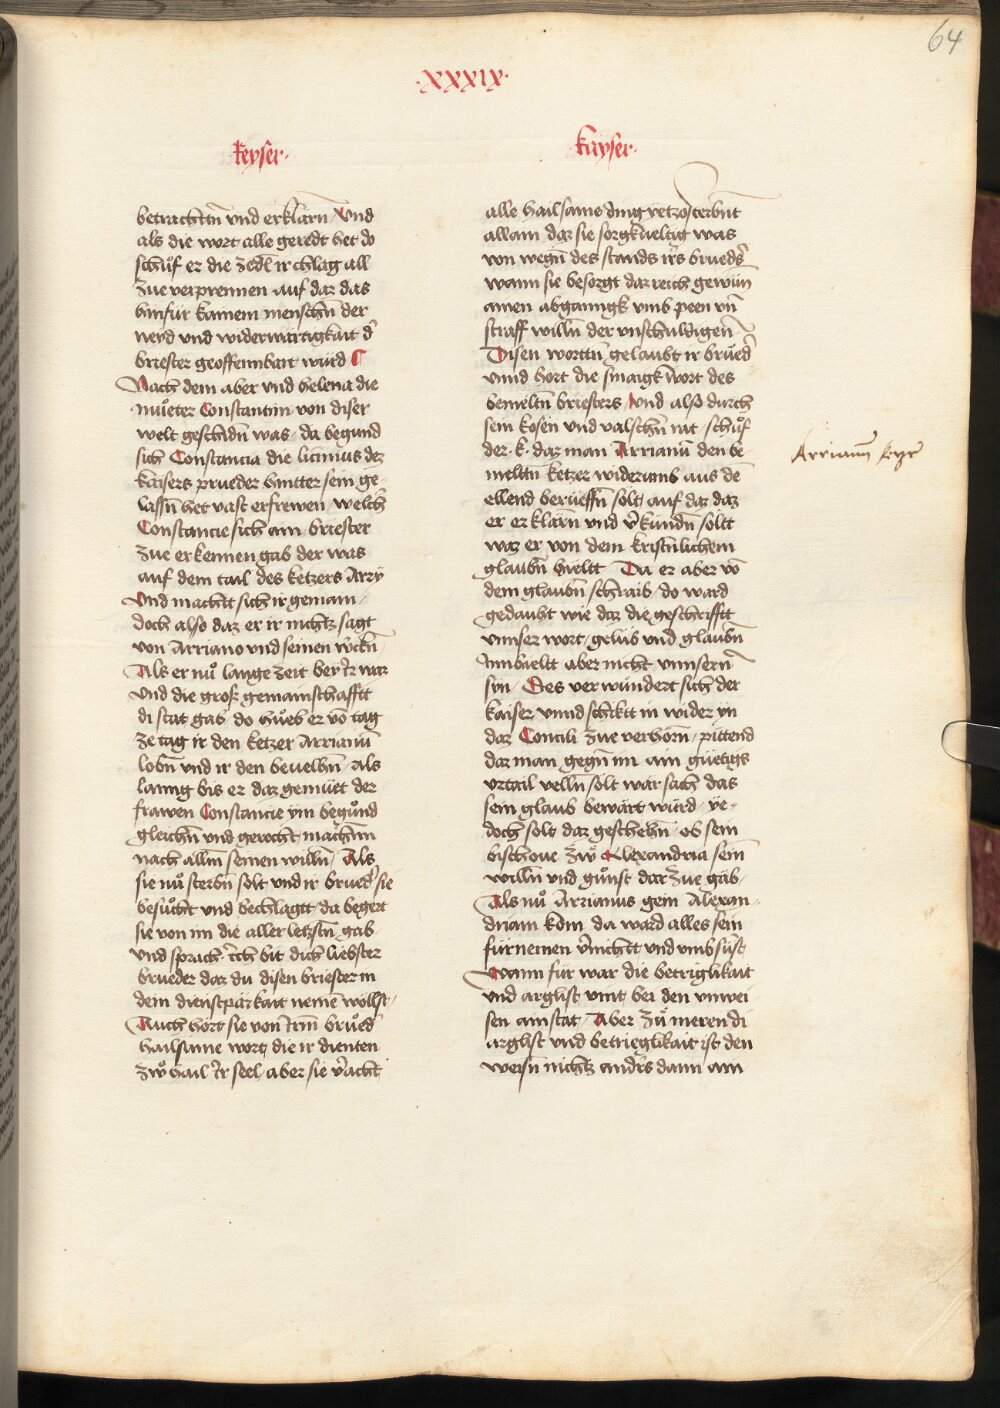 64
·XXXIX·
keyser·
betrachtt̄n vnd erklarn̄ / Vnd
als die wort alle geredt het do
schůf er die zedl ir chlag all
zue verprennen auf daz das
hinfür kainem menschn̄ der
neyd vnd widerwartigkait d̕
briester geoffennbart würd
Nach dem aber vnd helena die
můeter Constantini von diser
welt geschidn̄ was / da begund
sich Constancia die licinius dez
kaisers prueder hinter sein ge
lassn̄ het vast erfrewen / welch̕
Constancie sich ain briester
zue erkennen gab der was
auf dem tail des ketzers Arry
Vnd machtt sich ir gemain /
doch also daz er ir nichtz sagt
von Arriano vnd seinen
Als er nů lange zeit bey ir waz
Vnd die groß gemainschafft
di stat gab / do hůeb er vō tag
ze tag ir den ketzer Arrianū
lobn̄ vnd ir den beuelhn̄ / als
lanng bis er daz gemüet der
frawen Constancie ym begůnd
gleichn̄ vnd gerecht machenn
nach allen seinen willn̄ / Als
sie nů sterbn̄ solt vnd ir brued̕ sie
besůcht vnd bechlagtt / da begert
sie von im die aller letzstn̄ gab
vnd sprach· Ich bit dich liebster
brueder daz du disen briester in
dein dienstparkait nemē wöllst /
Auch hört sie von irm brůed̕
hailsame wort / die ir dienten
zẘ hail ir seel / aber sie v̕acht
kayser·
alle hailsame ding yetzo sterbūt
allain daz sie sorgkueltig was
von wegn̄ des stands irs brueds̕
wann sie besorgt daz reich gewün
ainen abganngk vmb peen vn̄
straff willn̄ der vnschuldigen
Disen wortn̄ gelaubt ir brůed̕
vnnd hort die smaigk wort des
bemeltn̄ briesters / Vnd also durch
sein kosen vnd valschn̄ rat / schůf
der ·k· daz man Arrianū den be
meltn̄ ketzer widerumb aus dē
ellend berueffn̄ solt / auf daz daz
er erklarn̄ vnd v̕kundn̄ söltt
waz er von dem kristnlichem
glaubn̄ hieltt / Da er aber vō
dem glaubn̄ schraib / do ward
gedaucht wie daz die geschrifftt
vnnser wort / gelüb vnd glaubn̄
Innhieltt aber nicht vnnsern̄
syn / Des verwündert sich der
kaiser vnnd schicktt in wider yn
daz Concili zue verhörn̄ / pittend
daz man gegn̄ im ain güetigs
vrtail velln̄ solt / wär sach das
sein glaub bewärt würd / ye=
doch solt daz geschehn̄ / ob sein
bischoue zẘ Alexandria sein
willn̄ vnd gůnst dar zue gäb /
Als nů Arrianus gein Alexan=
driam kom̄ / da ward alles sein
fürnemen v̕nichtt vnd vmbsüst
Wann für war die betriglikait
vnd arglist vint bei den vnwei=
sen ain stat / Aber zů meren di
arglist vnd betrieglikait ist den
weisn̄ nichtz anders dann ain